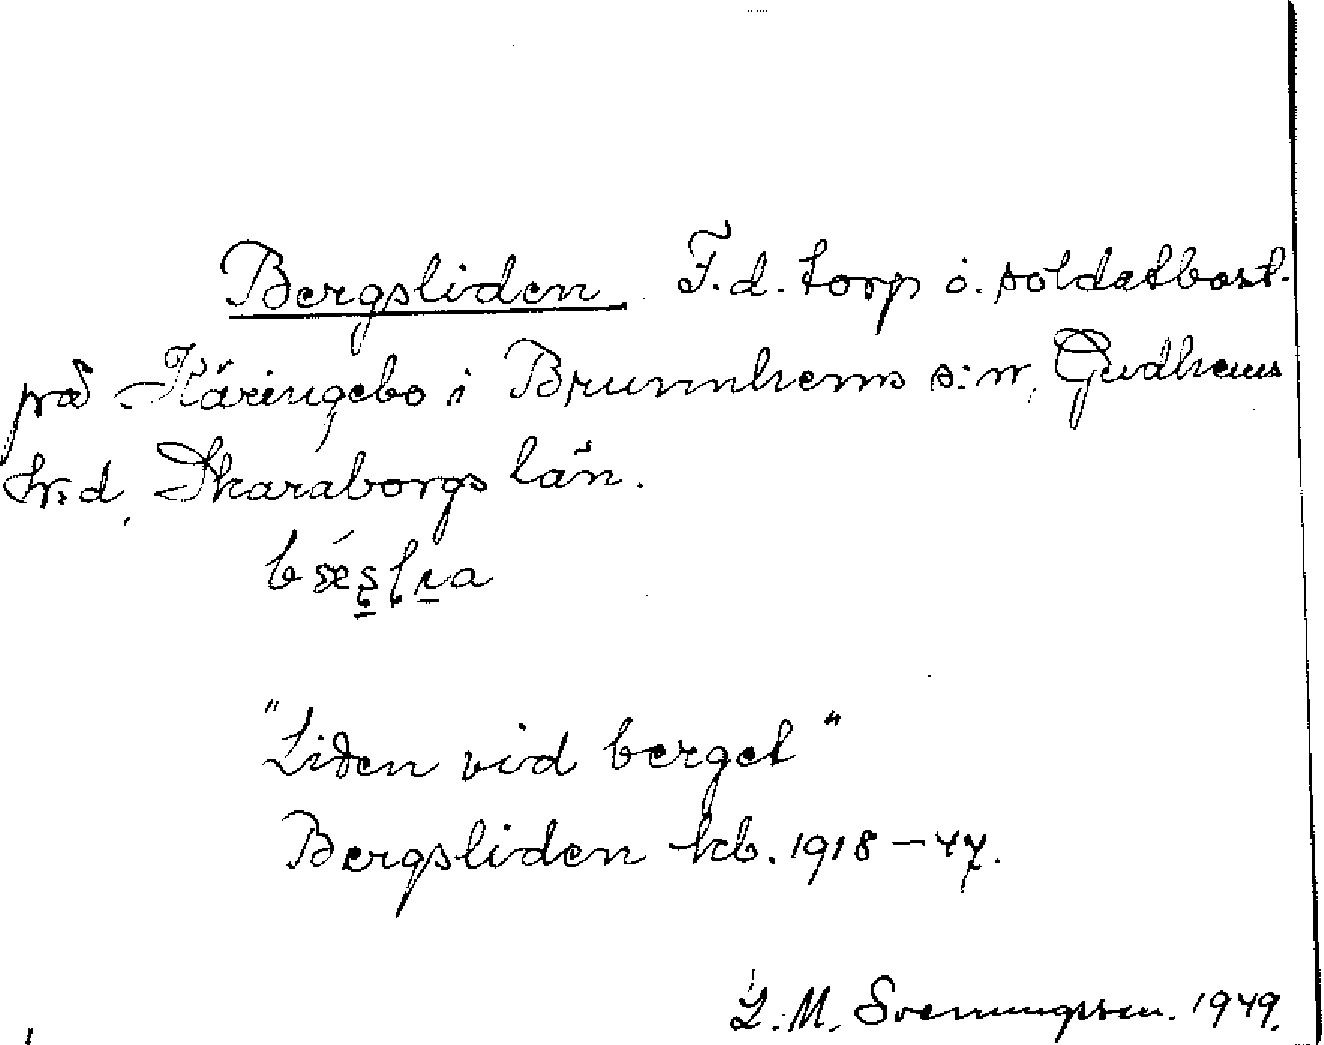 Bergsliden. F.d. torp o. soldatbost.
på Käringebo i Brunnhems s:n, Gudhems
hrd, Skaraborgs län.
"Liden vid berget"
Bergsliden kb. 1918–47.
L. M. Svenungsson. 1949.